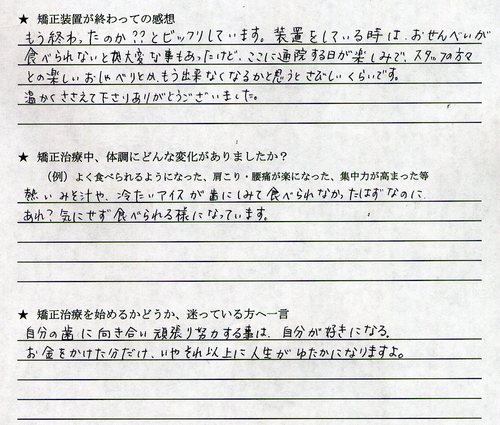 ★ 矯正装置が終わっての感想
もう終わったのか??とビックリしています。装置をしている時は、おせんべいが
食べられないと大変な事もあったけど、ここに通院する日が楽しみで、スタッフの方々
との楽しいおしゃべりとか、もう出来なくなるかと思うとさびしいくらいです。
温かくささえて下さりありがとうございました。
★ 矯正治療中、体調にどんな変化がありましたか？
（例）よく食べられるようになった、肩こり・腰痛が楽になった、集中力が高まった等
熱いみそ汁や、冷たいアイスが歯にしみて食べられなかったはずなのに、
あれ？気にせず食べられる様になっています。
★ 矯正治療を始めるかどうか、迷っている方へ一言
自分の歯に向き合い頑張り努力する事は、自分が好きになる。
お金をかけた分だけ、いやそれ以上に人生がゆたかになりますよ。